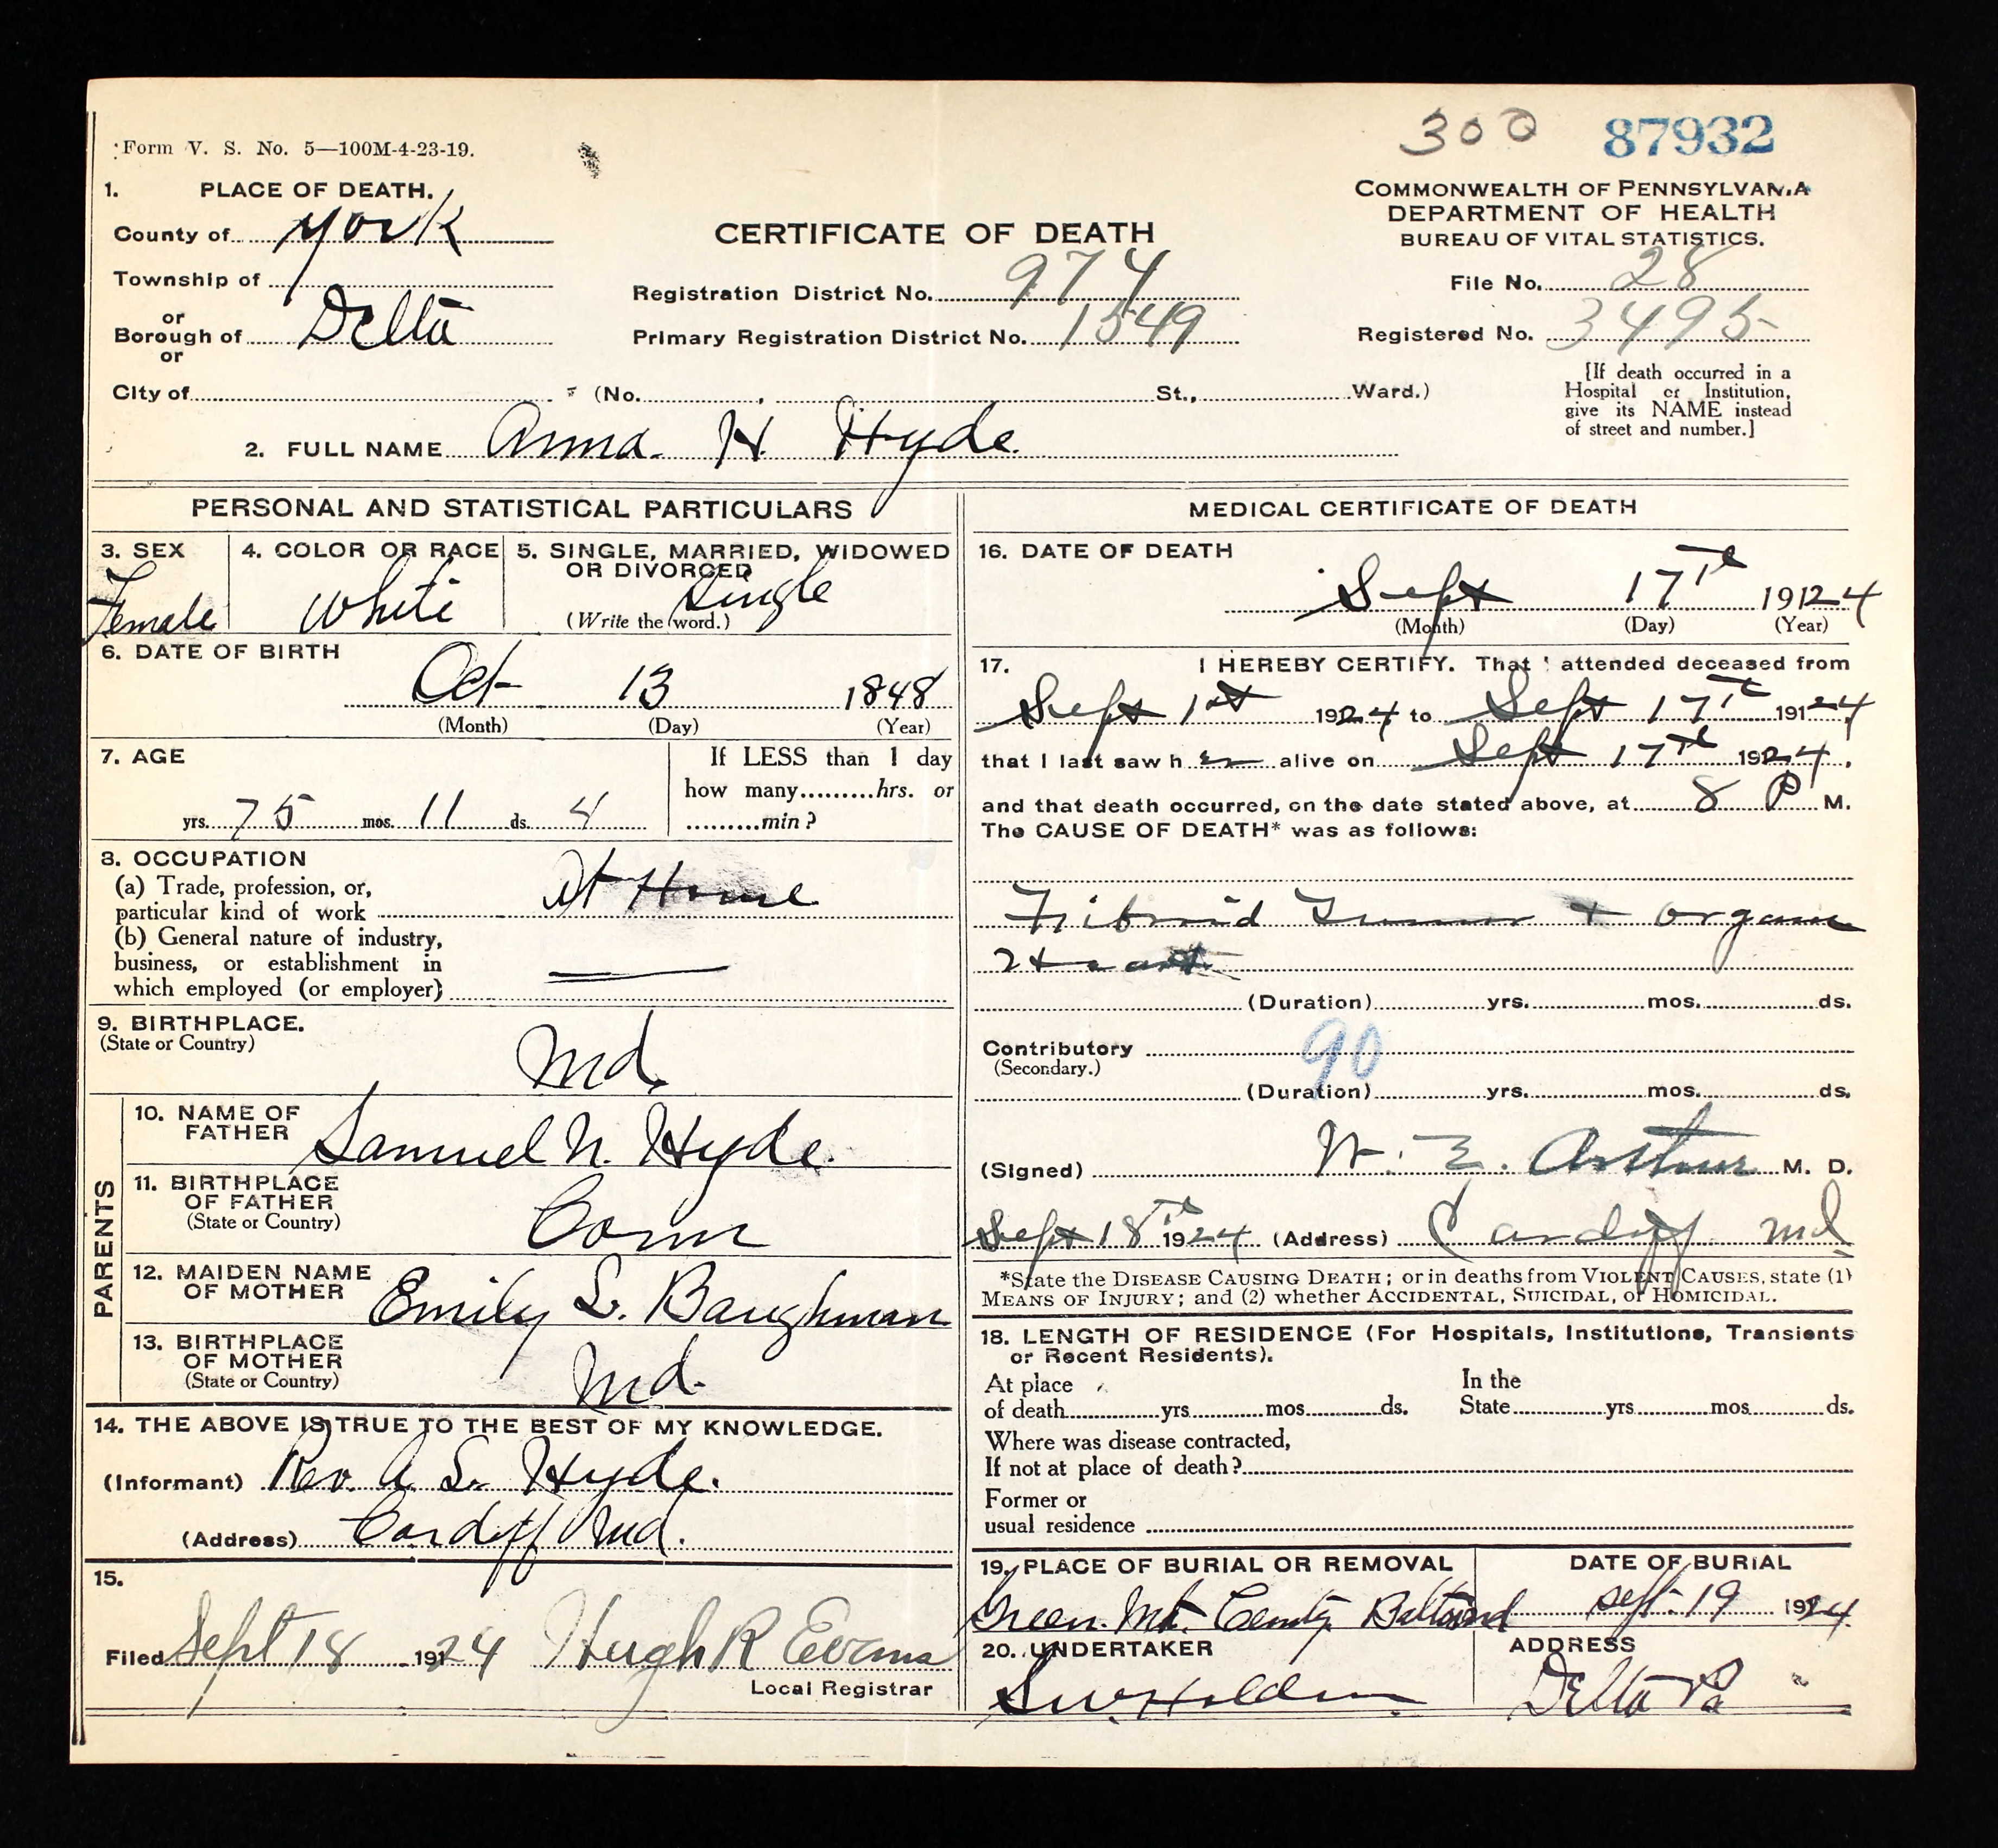 Form V. S. No. 5—100M-4-23-19.
300 87932
COMMONWEALTH OF PENNSYLVANIA
DEPARTMENT OF HEALTH
BUREAU OF VITAL STATISTICS.
CERTIFICATE OF DEATH
1. PLACE OF DEATH.
County of York
Township of
or
Borough of Delta
or
City of (No. , St., Ward.)
Registration District No. 974
Primary Registration District No. 1549
File No. 28
Registered No. 3495
[If death occurred in a
Hospital or Institution,
give its NAME instead
of street and number.]
2. FULL NAME Anna H. Hyde
PERSONAL AND STATISTICAL PARTICULARS
3. SEX
Female
4. COLOR OR RACE
White
5. SINGLE, MARRIED, WIDOWED
OR DIVORCED
Single
(Write the word.)
6. DATE OF BIRTH
Oct 13 1848
(Month) (Day) (Year)
7. AGE
yrs. 75 mos. 11 ds. 4
If LESS than 1 day
how many.........hrs. or
.........min?
8. OCCUPATION
(a) Trade, profession, or,
particular kind of work At Home
(b) General nature of industry,
business, or establishment in
which employed (or employer)
9. BIRTHPLACE.
(State or Country)
Md.
PARENTS
10. NAME OF
FATHER
Samuel N. Hyde.
11. BIRTHPLACE
OF FATHER
(State or Country)
Conn
12. MAIDEN NAME
OF MOTHER
Emily S. Baughman
13. BIRTHPLACE
OF MOTHER
(State or Country)
Md.
14. THE ABOVE IS TRUE TO THE BEST OF MY KNOWLEDGE.
(Informant) Rev. A. S. Hyde.
(Address) Cardiff Md.
15.
Filed Sept 18 1924 Hugh R Evans
Local Registrar
MEDICAL CERTIFICATE OF DEATH
16. DATE OF DEATH
Sept 17th 1924
(Month) (Day) (Year)
17. I HEREBY CERTIFY. That I attended deceased from
Sept 1st 1924 to Sept 17th 1924
that I last saw h er alive on Sept 17th 1924,
and that death occurred, on the date stated above, at 8 P M.
The CAUSE OF DEATH* was as follows:
Fibroid Tumor + organic
Heart
(Duration) yrs. mos. ds.
Contributory 90
(Secondary.)
(Duration) yrs. mos. ds.
(Signed) W. E. Arthur M. D.
Sept 18th 1924 (Address) Cardiff Md
*State the DISEASE CAUSING DEATH; or in deaths from VIOLENT CAUSES, state (1)
MEANS OF INJURY; and (2) whether ACCIDENTAL, SUICIDAL, or HOMICIDAL.
18. LENGTH OF RESIDENCE (For Hospitals, Institutions, Transients
or Recent Residents).
At place
of death yrs mos ds.
In the
State yrs mos ds.
Where was disease contracted,
If not at place of death?
Former or
usual residence
19. PLACE OF BURIAL OR REMOVAL
Green Mt. Cemty.
DATE OF BURIAL
Sept. 19 1924.
20. UNDERTAKER
S.W. Holden
ADDRESS
Delta Pa